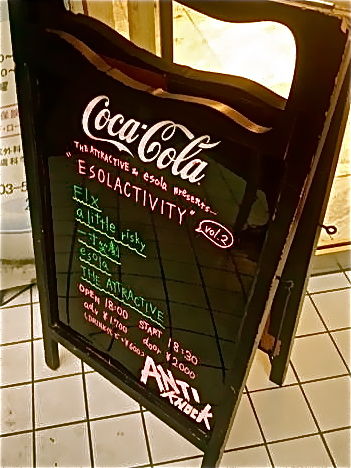 Coca-Cola
THE ATTRACTIVE & esola presents~
"ESOLACTIVITY" vol.2
FLX
a little risky
esola
THE ATTRACTIVE
OPEN 18:00 START 18:30
adv ¥1700 door ¥2000
ANTI
KNOCK